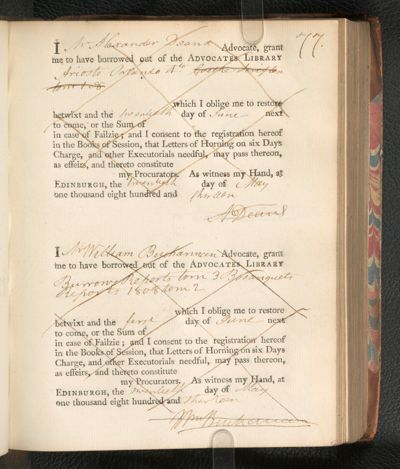 77.
I Mr Alexander Deans Advocate, grant
me to have borrowed out of the ADVOCATES LIBRARY
Ariosto Orlando
which I oblige me to restore
betwixt and the twentieth day of June next
to come, or the Sum of
in case of Failzie; and I consent to the registration hereof
in the Books of Session, that Letters of Horning on six Days
Charge, and other Executorials needful, may pass thereon,
as effeirs, and thereto constitute
my Procurators. As witness my Hand, at
EDINBURGH, the twentieth day of May
one thousand eight hundred and thirteen
ADeans
I Mr William Buchanan Advocate, grant
me to have borrowed out of the ADVOCATES LIBRARY
Burrows Reports tom 3 Bosanquets
Reports 1808 tom 2
which I oblige me to restore
betwixt and the first day of June next
to come, or the Sum of
in case of Failzie; and I consent to the registration hereof
in the Books of Session, that Letters of Horning on six Days
Charge, and other Executorials needful, may pass thereon,
as effeirs, and thereto constitute
my Procurators. As witness my Hand, at
EDINBURGH, the twentieth day of May
one thousand eight hundred and thirteen
Wm Buchanan